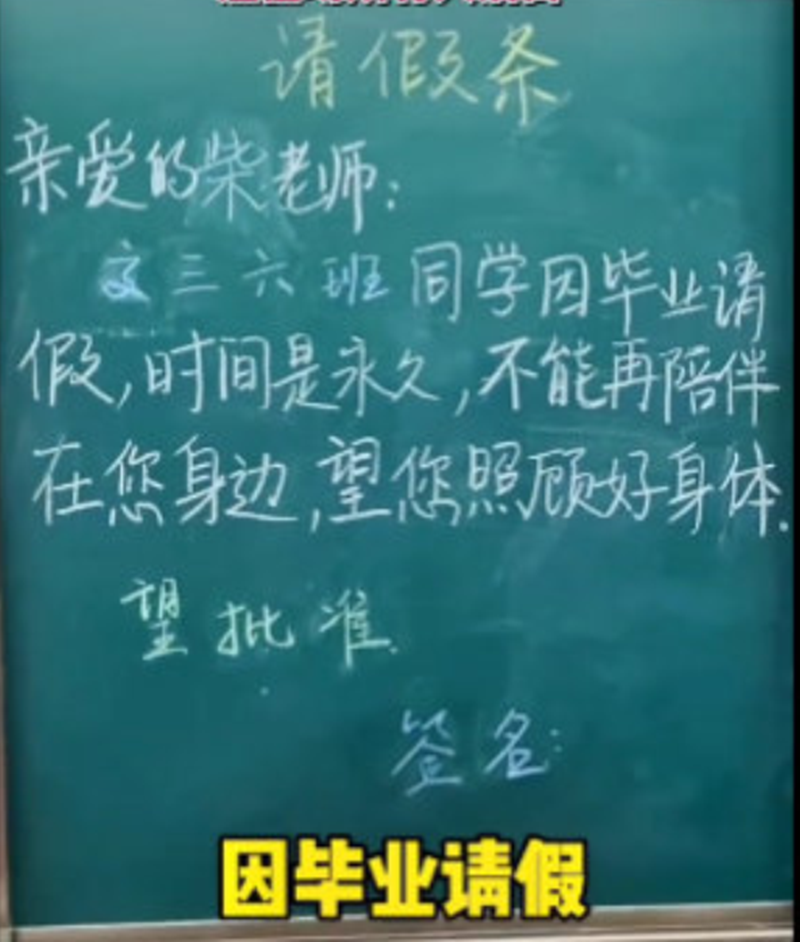 请假条
亲爱的柴老师:
文三六班同学因毕业请
假,时间是永久,不能再陪伴
在您身边,望您照顾好身体.
望批准.
签名:
因毕业请假